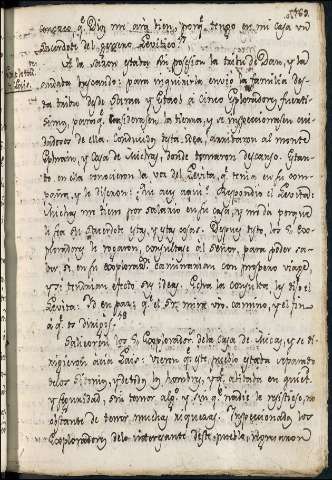 conozco q.e Dios me ará bien, porq.e tengo en mi Casa vn
Sacerdote del genero Levitico
A la sazon estaba sin posesion la tribu de Dan, y la
andaba buscando: para inquirirla envió la familia des-
ta tribu desde Sarna y Estaol a cinco Exploradores fuerti-
simos, para q.e considerasen la tierra, y se inspeccionasen
de ella. Conduciendo esta idea, arribaron al monte
Ephrain, y Casa de Michas, donde tomaron descanso. Estan-
do en ella conocieron la voz del Levita, q.e tenia en su com-
pañia, y le dijeron: ¿Qui aces aqui? Respondio el Levita:
Michas me tiene por salario en su casa, y me da porque
le sea su Sacerdote esta, y estas cosas. Despues desto, los 5 Ex-
ploradores le rogaron, consultase al Señor, para poder sa-
ber si en su exploracion caminarian con prospero viage,
y si tendrian efecto sus ideas. Echa la consulta les dijo el
Levita: Id en paz; q.e el S.r mira vro. camino, y el fin
a q.e os dirigis.
Salieron los 5 Exploradores de la Casa de Micas, y se di-
rigieron acia Lais: vieron q.e este pueblo estaba separado
de los Sidonios, y de todos los hombres, y q.e abitaba en quiet.d
y seguridad, sin temor alg.o y sin q.e nadie le resistiese, no
obstante de tener muchas riquezas. Inspeccionado los
Exploradores de lo interesante deste pueblo, regresaron